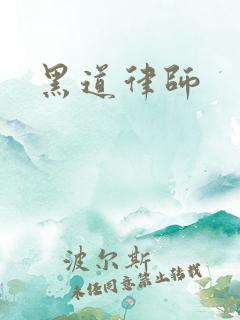 黑道律師
波尔斯
未经同意禁止转载